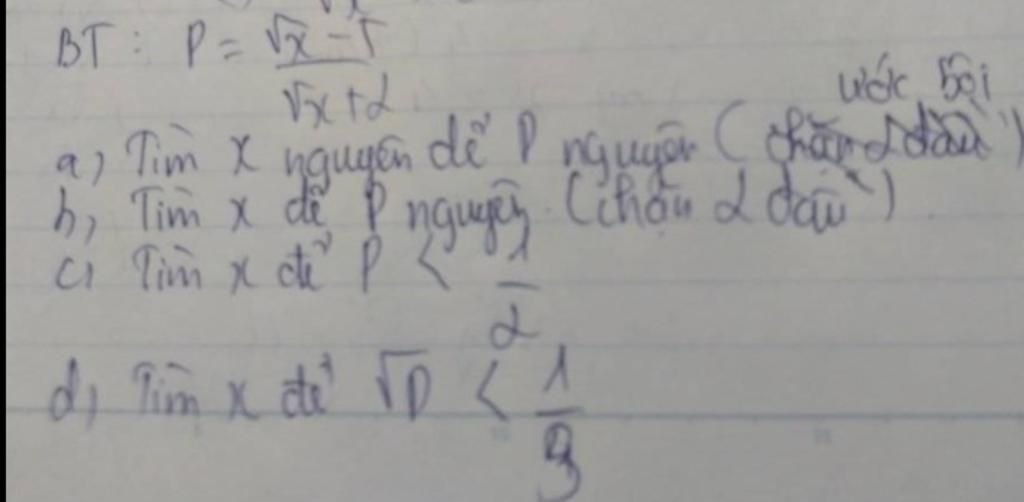 BT : P = √x - 5 / √x + 2
a, Tìm x nguyên để P nguyên ( ước bội )
b, Tìm x để P nguyên. (chặn 2 đầu)
c, Tìm x để P < 1/2
d, Tìm x để √P < 1/3